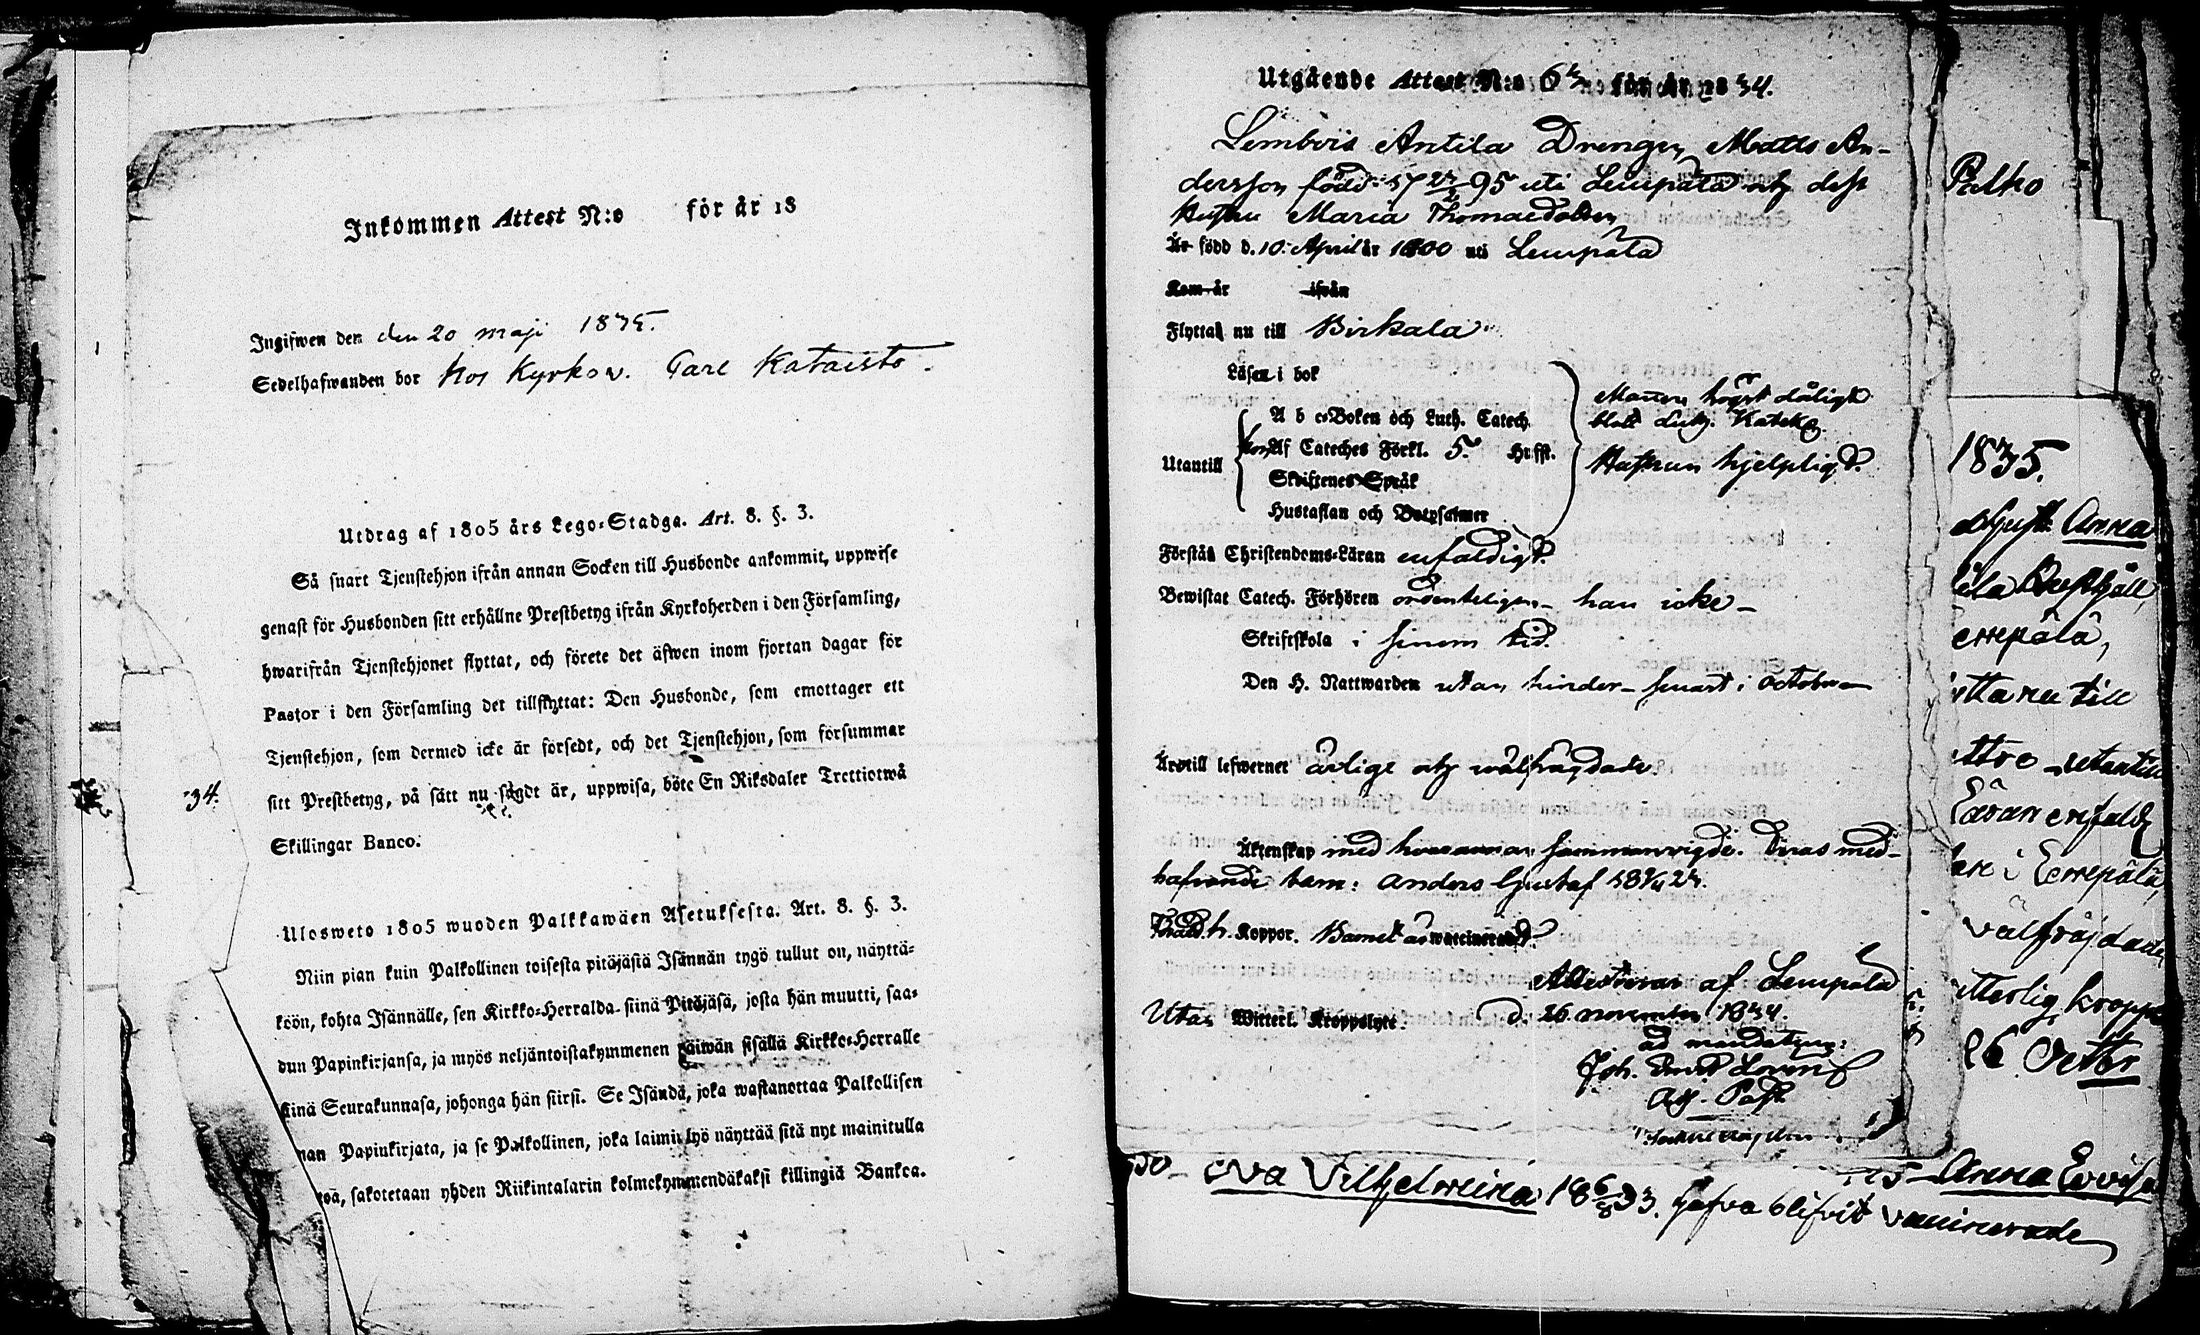 Inkommen Attest N:o för år 18
Ingifwen den den 20 maji 1835.
Sedelhafwanden bor hos Kyrkov. Carl Kataisto.
Utdrag af 1805 års Lego-Stadga. Art. 8. §. 3.
Så snart Tjenstehjon ifrån annan Socken till Husbonde ankommit, uppwise
genast för Husbonden sitt erhållne Prestbetyg ifrån Kyrkoherden i den Församling,
hwarifrån Tjenstehjonet flyttat, och förete det äfwen inom fjortan dagar för
Pastor i den Församling det tillflyttat: Den Husbonde, som emottager ett
Tjenstehjon, som dermed icke är försedt, och det Tjenstehjon, som försummar
sitt Prestbetyg, på sätt nu sagdt är, uppwisa, böte En Riksdaler Trettiotwå
Skillingar Banco.
34.
Ulosweto 1805 wuoden Palkkawäen Asetuksesta. Art. 8. §. 3.
Niin pian kuin Palkollinen toisesta pitäjästä Isännän tygö tullut on, näyttä-
köön, kohta Isännälle, sen Kirkko-Herralda siinä Pitäjäsä, josta hän muutti, saa-
dun Papinkirjansa, ja myös neljäntoistakymmenen päiwän sisällä Kirkko-Herralle
siinä Seurakunnasa, johonga hän siirsi. Se Isändä, joka wastanottaa Palkollisen
man Papinkirjata, ja se Palkollinen, joka laimilyö näyttää sitä nyt mainitulla
sakotetaan yhden Riikintalarin kolmekymmendäkaksi killingiä Bankca.
Utgående Attest N:o för år 1834.
Lembois Antila Drengen Matts An-
dersson född 17 95 uti Lempälä och dess
Hustru Maria Thomaedotter
Är född d. 10 April år 1800 uti Lempälä
Kom år ifrån
Flyttat nu till Birkala
Läsen i bok
A b c-Boken och Luth. Catech.
Utantill Af Cateches Förkl. 5. Hufst.
Skriftenes Språk
Hustaflan och Botpsalmer
Mannen högst dåligt
blott Luth. Katek.
Hustrun hjelpligt.
Förstån Christendoms-Läran enfaldigt.
Bewistat Catech. Förhören ordenteligen han icke
Skriftskola i sinom tid.
Den H. Nattwarden utan hinder senast i October
Äro till lefwernet ärlige och wälfrägdade
Äktenskap med hvarannan sammanvigde. Deras med-
hafvande barn: Anders Gustaf
Koppor. Barnet är waccineradt.
Attesteras af Lempälä
Utan Witterl. Kroppslyte. d. 26 november 1834.
ad mandatum:
Joh.
Adj. Past.
Eva Vilhelmina 18 33. hafva blifvit vaccinerade
Palko
1835.
Anna
errepälä,
ttanu till
utantill
Läran enfaldig
are i Lerrepälä
välfräjdade
itterlig kropps
26 Octbr
Anna Lovisa